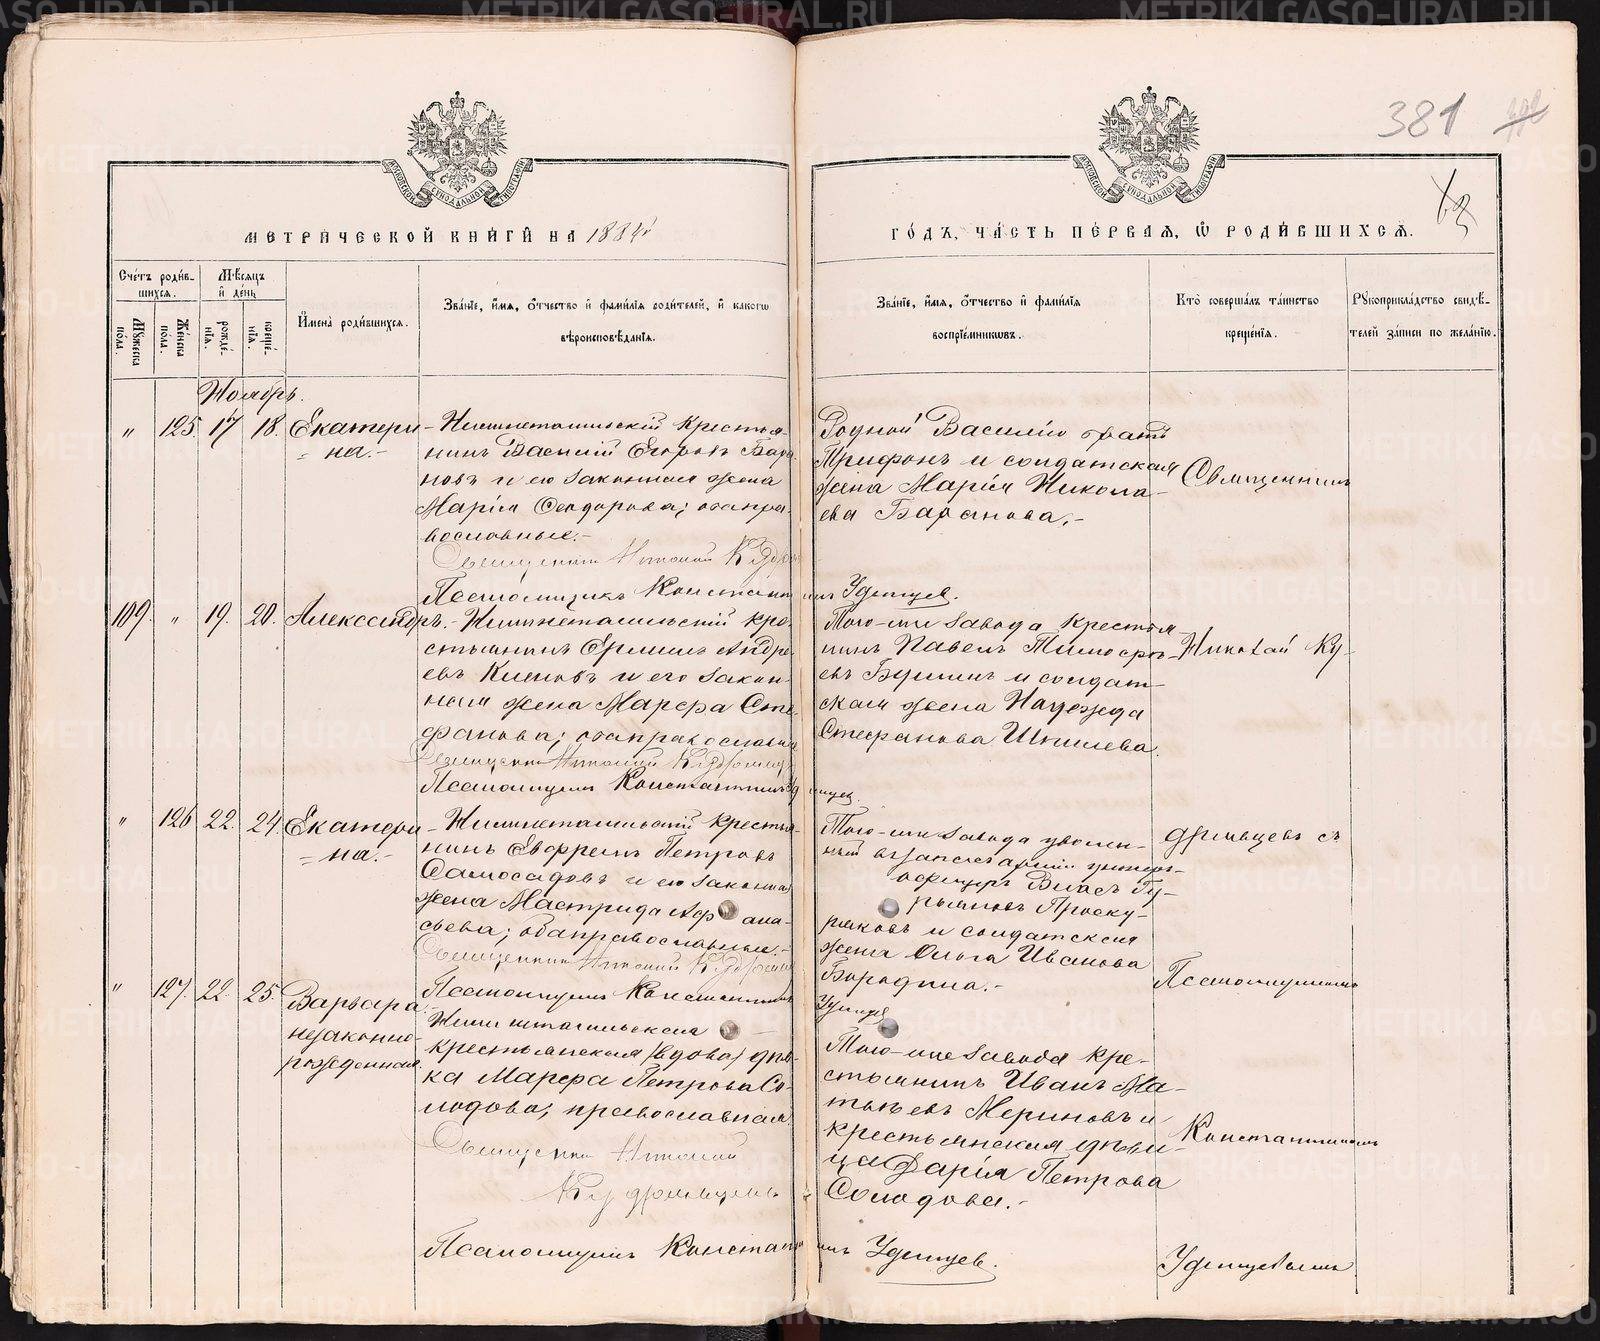 METRIKI.GASO-URAL.RU
381
МЕТРИЧЕСКОЙ КНИГИ НА 1884й
ГОДЪ, ЧАСТЬ ПЕРВАЯ, Ѡ РОДИВШИХСЯ.
Счетъ родившихся.
Мужеска пола.
Женска пола.
Мѣсяцъ и день
рожденія.
крещенія.
Имена родившихся.
Званіе, имя, отчество и фамилія родителей, и какогѡ вѣроисповѣданія.
Званіе, имя, отчество и фамилія воспріемниковъ.
Кто совершалъ таинство крещенія.
Рукоприкладство свидѣтелей записи по желанію.
Ноябрь.
" 125. 17 18. Екатери-
= на. -
Нижнетагильскій крестья-
нинъ Василій Егоровъ Бара-
новъ и его законная жена
Марія Ѳеодорова; оба пра-
вославные. -
Священникъ Николай
Псаломщикъ Константинъ Удинцев.
Родной Василію братъ
Трифонъ и солдатская
жена Марія Никола-
ева Баранова. -
Священникъ
109. " 19. 20. Александръ. -
Нижнетагильскій кре-
стьянинъ
Андре-
евъ
и его закон-
ная жена Марѳа Сте-
фанова; оба православны
Священникъ Николай
Псаломщикъ Константинъ Удинцев.
Того-же завода крестья
нинъ Павелъ Тимоѳе-
евъ
и солдат-
ская жена Надежда
Стефанова
Николай Ку-
" 126 22. 24 Екатери
= на. -
Нижнетагильскій крестья-
нинъ Евфремъ Петровъ
Самосадовъ и его законная
жена Мастридія Афана-
сьева; оба православные. -
Священникъ Николай
Псаломщикъ Константинъ
Удинцев
Того-же завода уволен-
ный въ запас арміи унтеръ-
офицеръ Власъ Гу-
рьяновъ Проску-
ряковъ и солдатская
жена Ольга Иванова
Бородина. -
дрявцевъ съ
Псаломщикомъ
" 127. 22. 25. Варвара
незаконно-
рожденная.
Нижнетагильская
крестьянская (вдова) дѣв-
ка Марѳа Петрова Со-
лодова, православная.
Священникъ Николай
Кудрявцевъ
Псаломщикъ Константинъ Удинцев.
Того-же завода кре-
стьянинъ Иванъ Ма-
твѣевъ Мериновъ и
крестьянская дѣви-
ца Дарія Петрова
Солодова. -
Константиномъ
Удинцевымъ